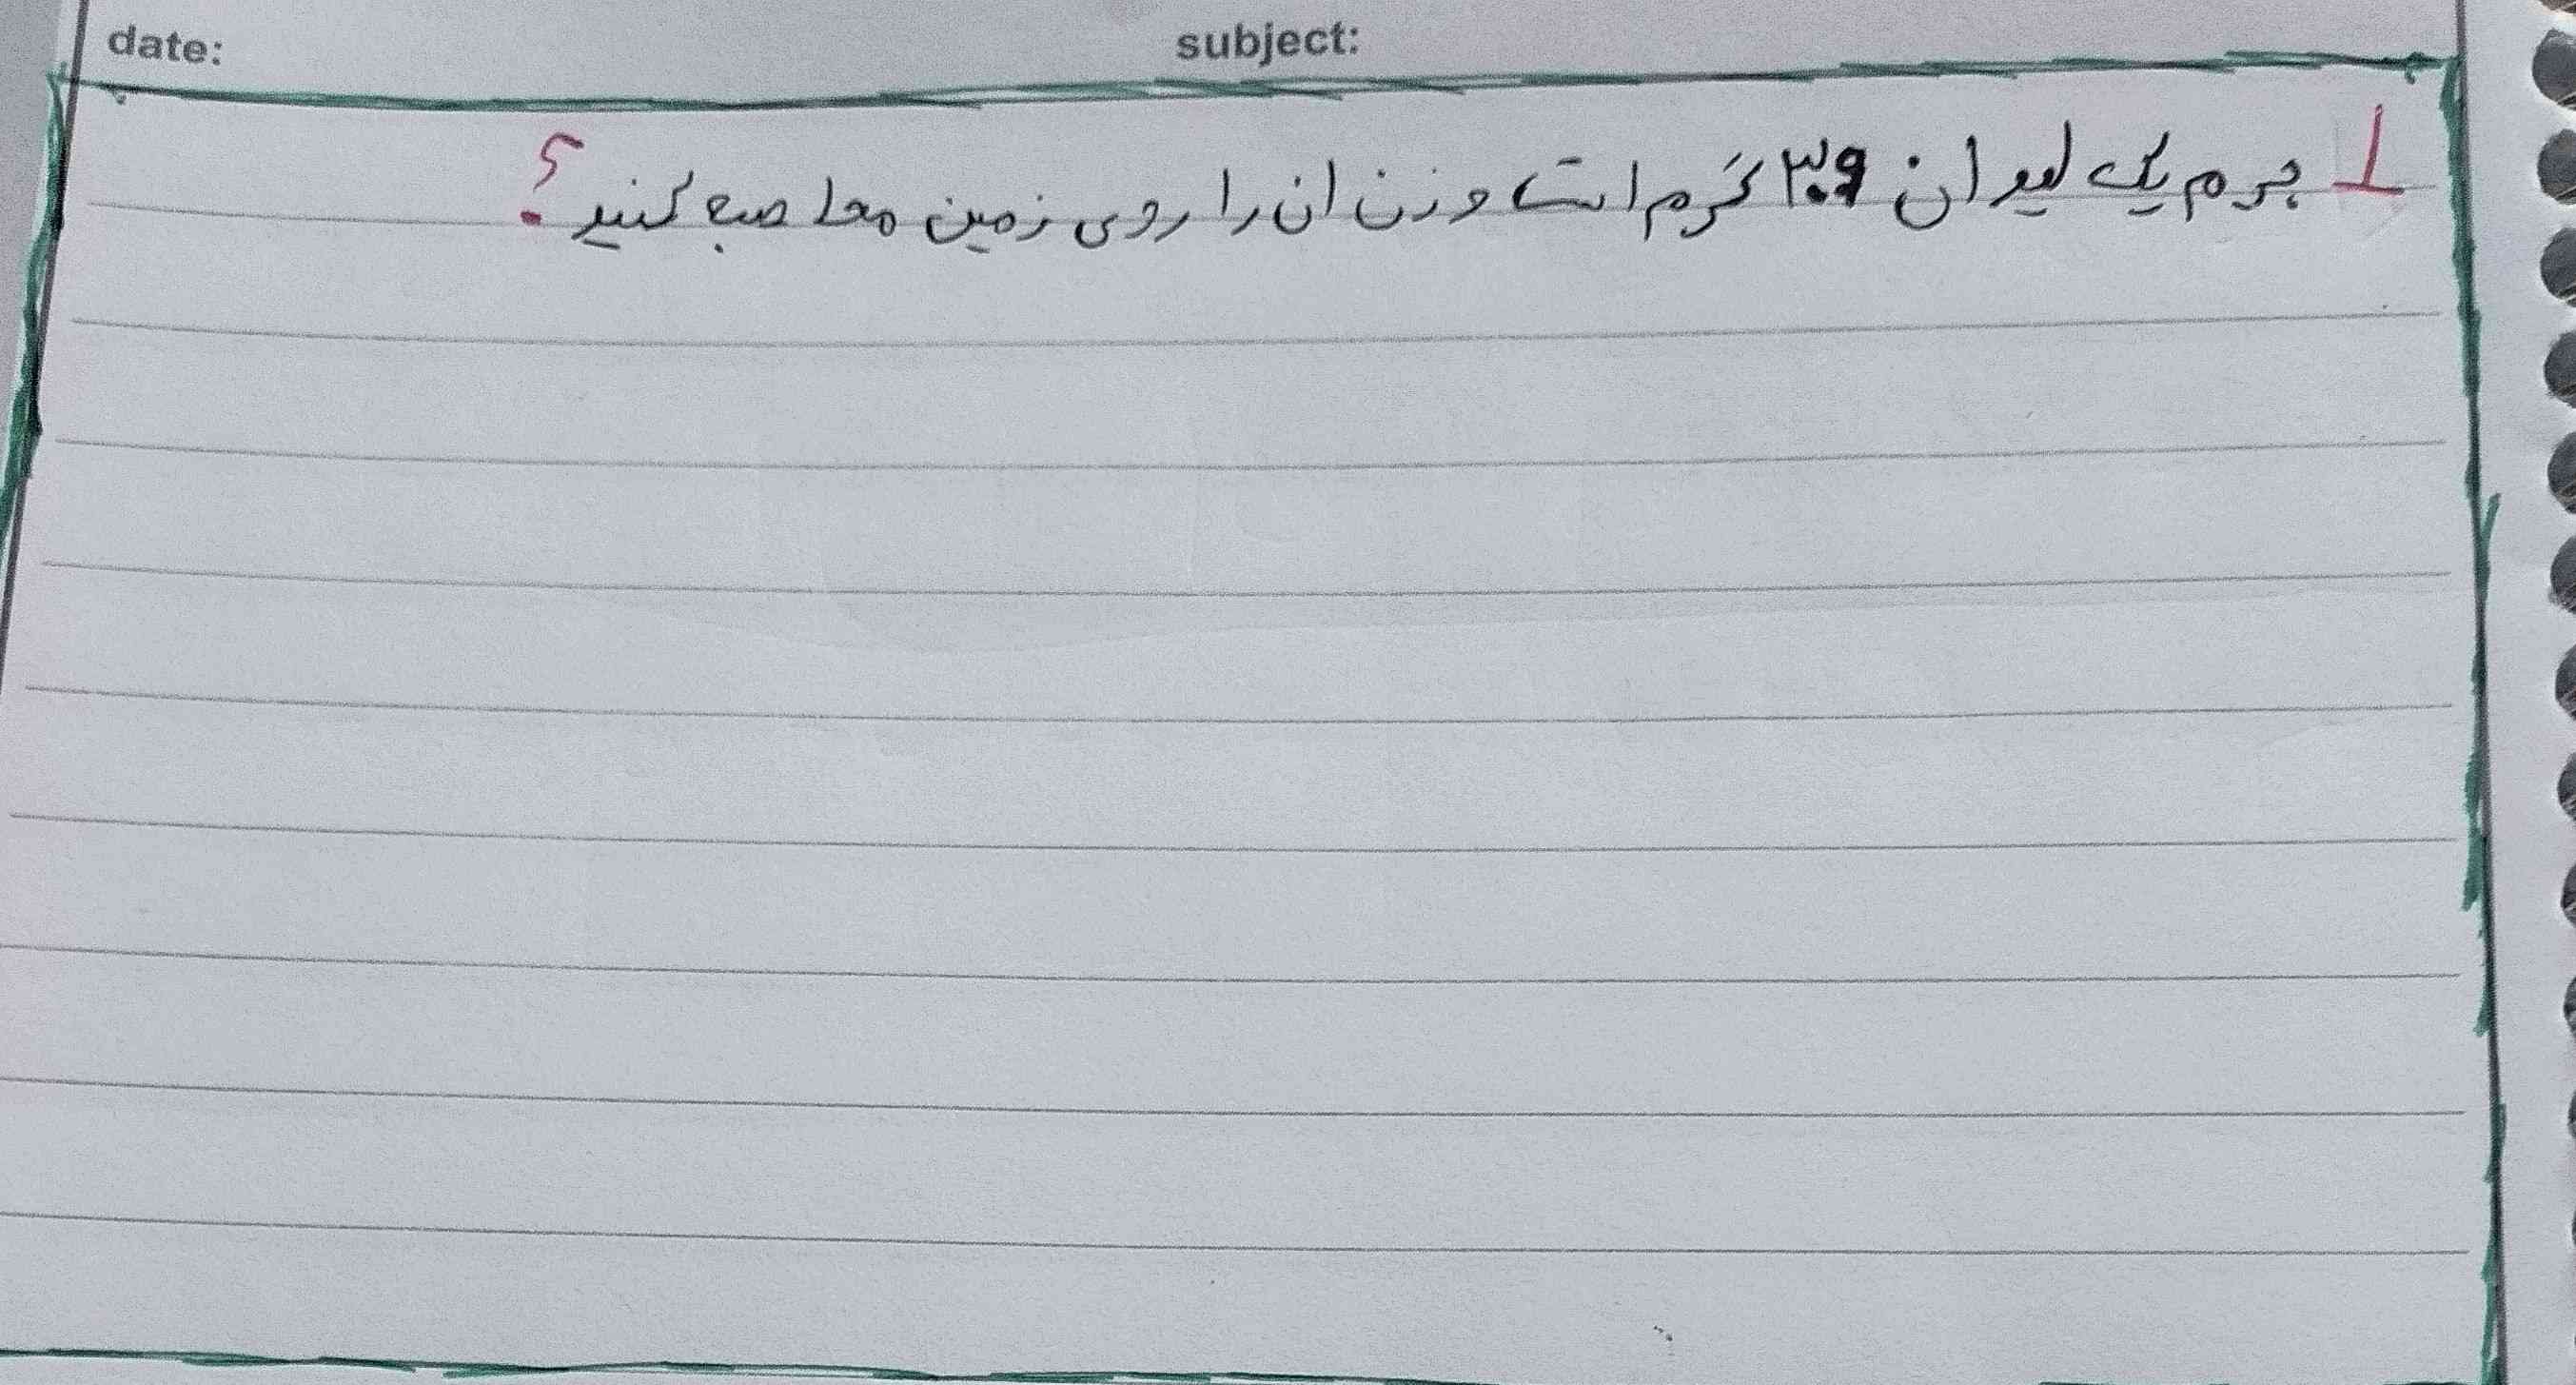 date: subject:
1 جرم یک لیوان ۳۰۹ گرم است وزن ان را روی زمین محاصبه کنید؟